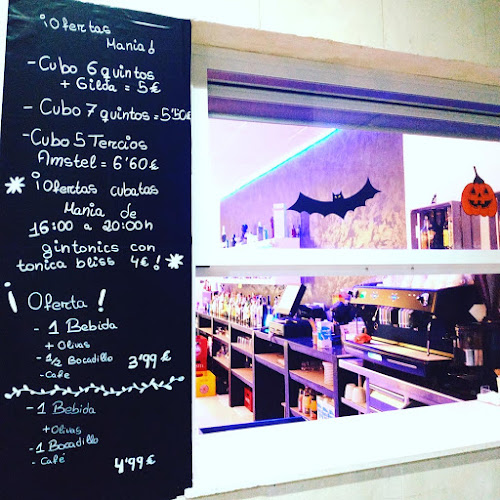 ¡Ofertas
Mania!
- Cubo 6 quintos
+ Gilda = 5€
- Cubo 7 quintos = 5'50€
- Cubo 5 Tercios
Amstel = 6'60€
* ¡Ofertas cubatas
Mania de
16:00 a 20:00h
gintonics con
tonica bliss 4€! *
¡Oferta!
- 1 Bebida
+ Olivas
- 1/2 Bocadillo 3'99€
- Café
- 1 Bebida
+ Olivas
- 1 Bocadillo
- Café 4'99€